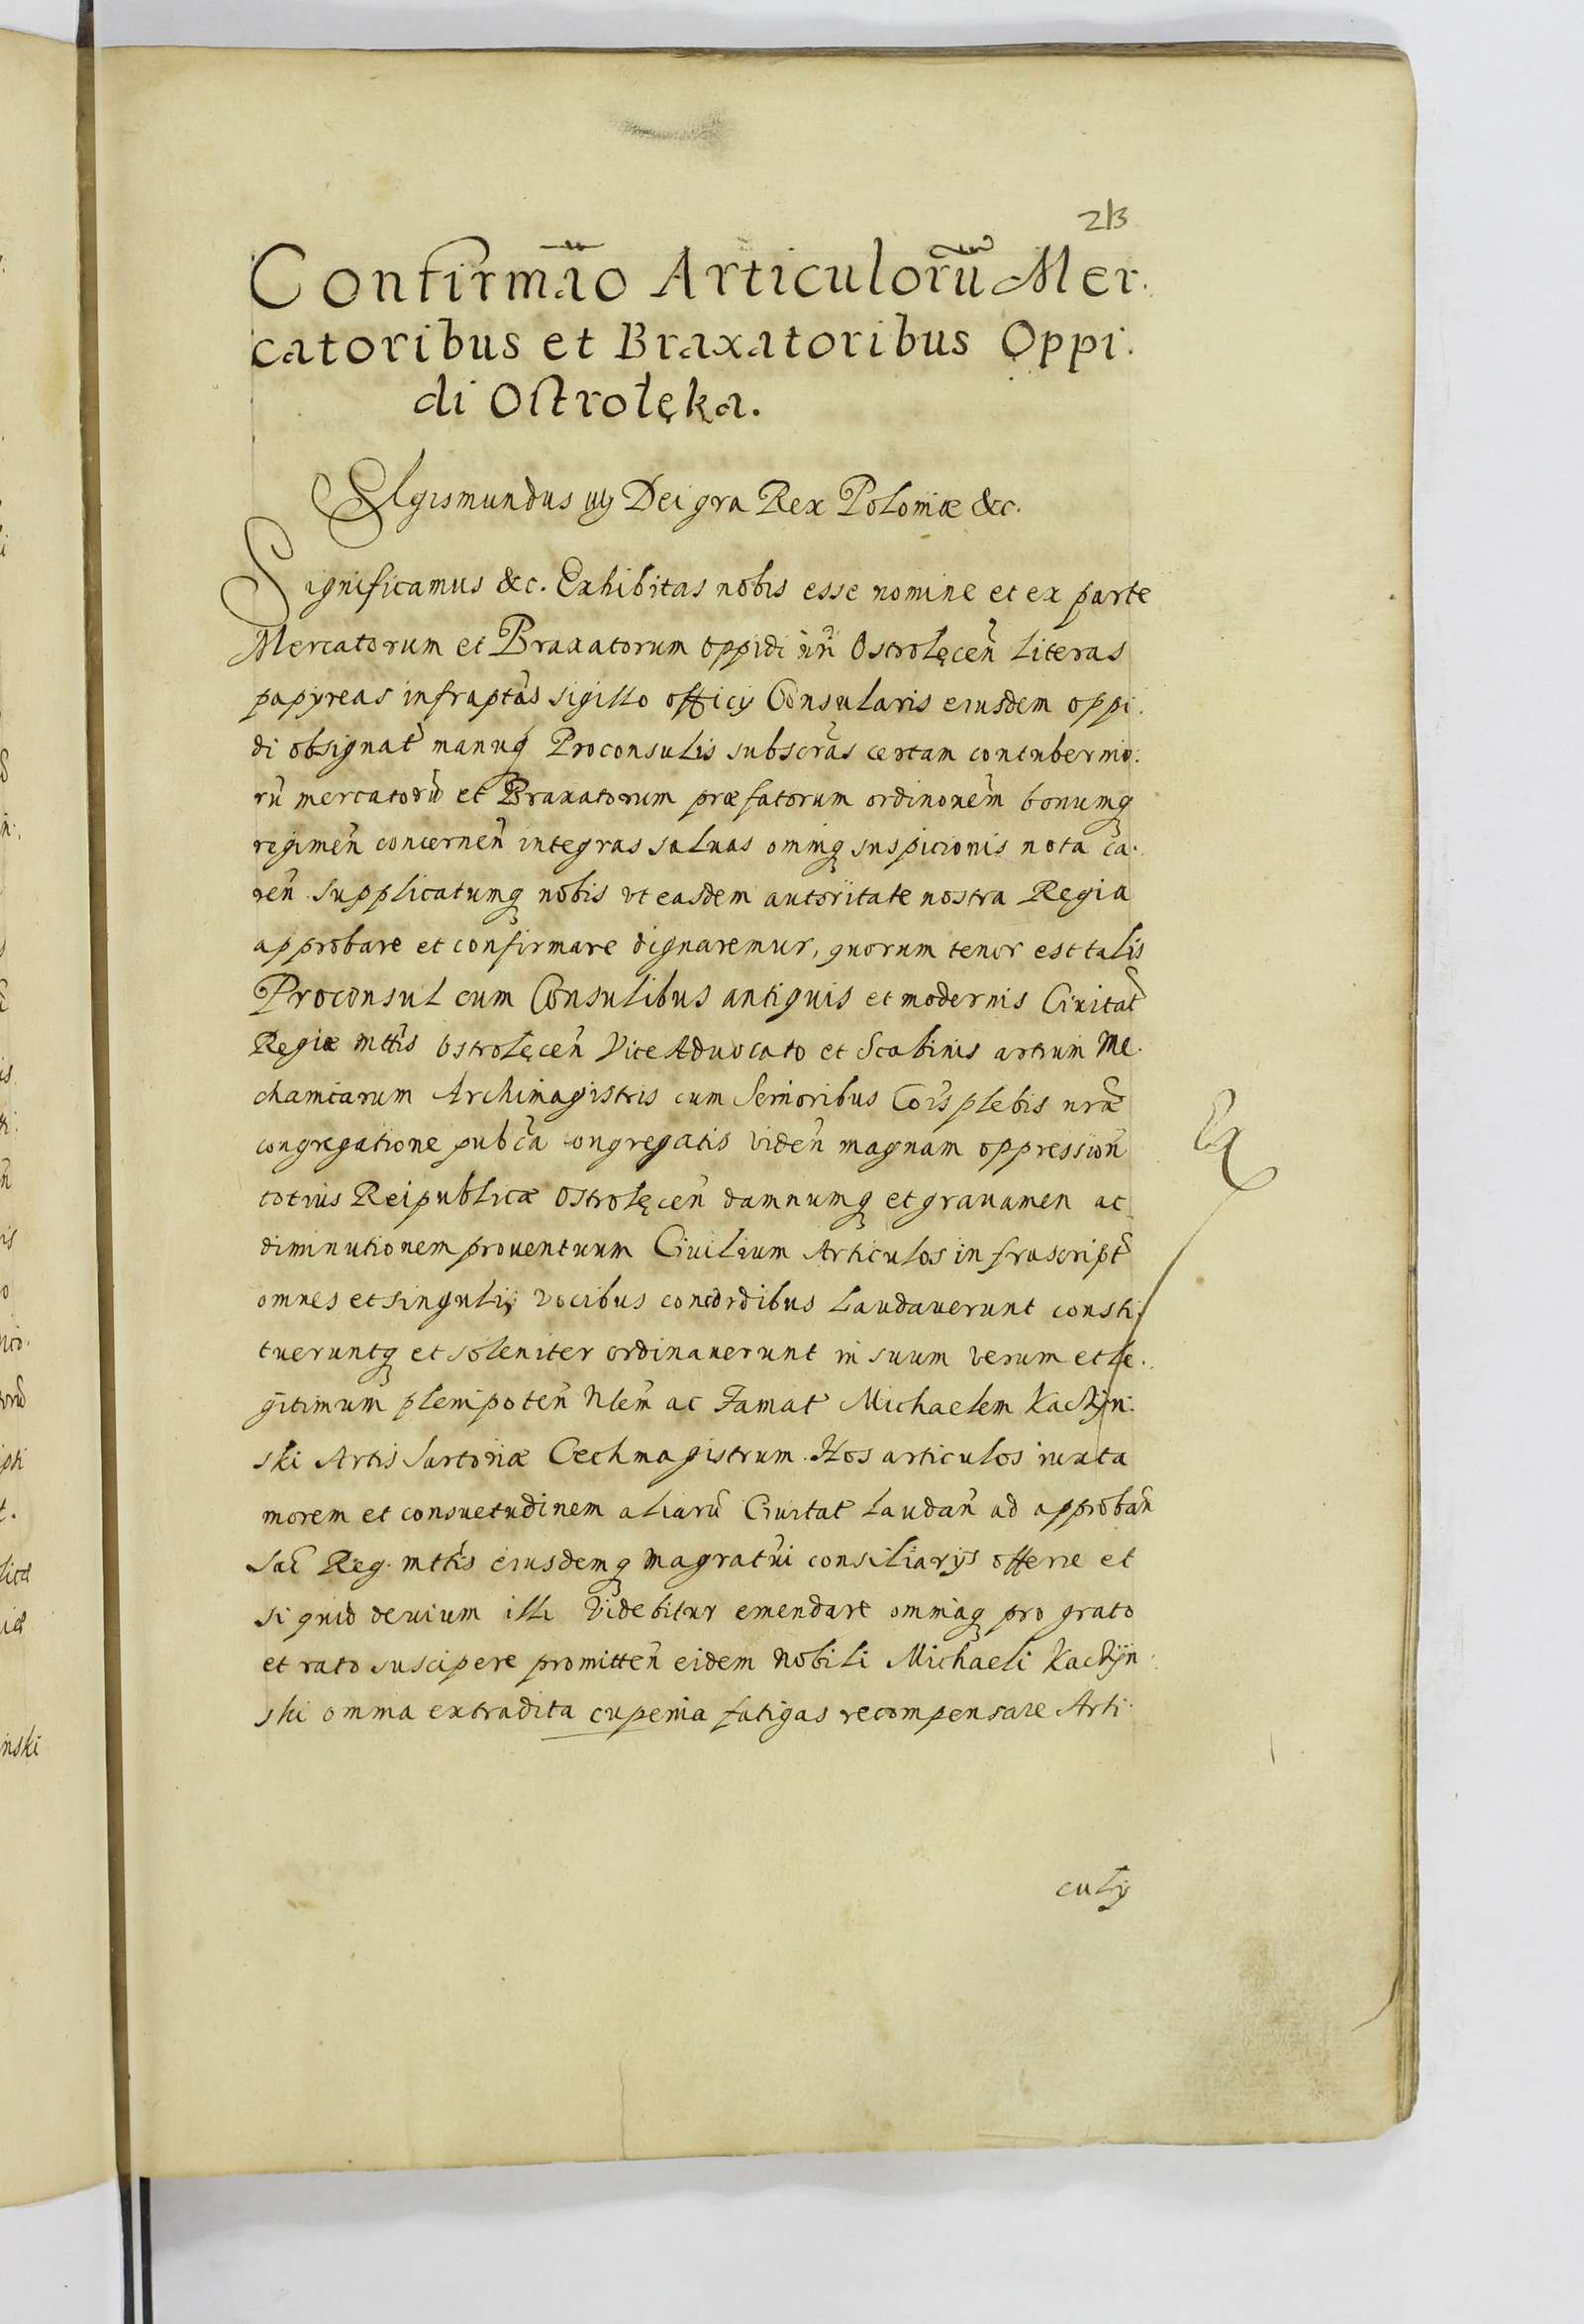 213
Confirmāo Articulorū Mer.
catoribus et Braxatoribus Oppi.
di Ostrolęka.
SIgismundus iij Dei gra Rex Poloniæ &c.
Significamus &c. Exhibitas nobis esse nomine et ex parte
Mercatorum et Braxatorum oppidi nr̄i Ostrolęcen̄ literas
papyreas infraptas sigillo officij Consularis eiusdem oppi.
di obsignat̄ manuq̧ Proconsulis subscr̄as certam contubernio.
rū mercatorū et Braxatorum præfatorum ordinonem̄ bonumq̧
regimen̄ concernen̄ integras saluas omniq̧ suspicionis nota ca.
ren̄ supplicatumq̧ nobis vt easdem autoritate nostra Regia
approbare et confirmare dignaremur, quorum tenor est talis
Proconsul cum Consulibus antiquis et modernis Ciuitat̄
Regiæ mttis Ostrolęcen̄ Vice Aduocato et Scabinis artium Me.
chanicarum Archimagistris cum Senioribus Cois̄ plebis nræ
congregatione pubca congregatis viden̄ magnam oppression̄
totius Reipublicæ Ostrolęcen̄ damnumq̧ et grauamen ac
diminutionem prouentuum Ciuilium Articulos infrascript̄
omnes et singulis vocibus concordibus laudauerunt consti.
tueruntq̧ et soleniter ordinauerunt in suum verum et le.
gitimum plenipoten̄ Nlem̄ ac Famat̄ Michaelem Kaczyn.
ski Artis Sartoriæ Cechmagistrum. Hos articulos iuxta
morem et consuetudinem aliarū Ciuitat̄ laudan̄ ad approban̄
Sac̄ Reg. mttis eiusdemq̧ magratui consiliarijs offerre et
si quid deuium illi videbitur emendare omniaq̧ pro grato
et rato suscipere promitten̄ eidem Nobili Michaeli Kaczijn.
ski omnia extradita cupenia fatigas recompensare Arti.
culij